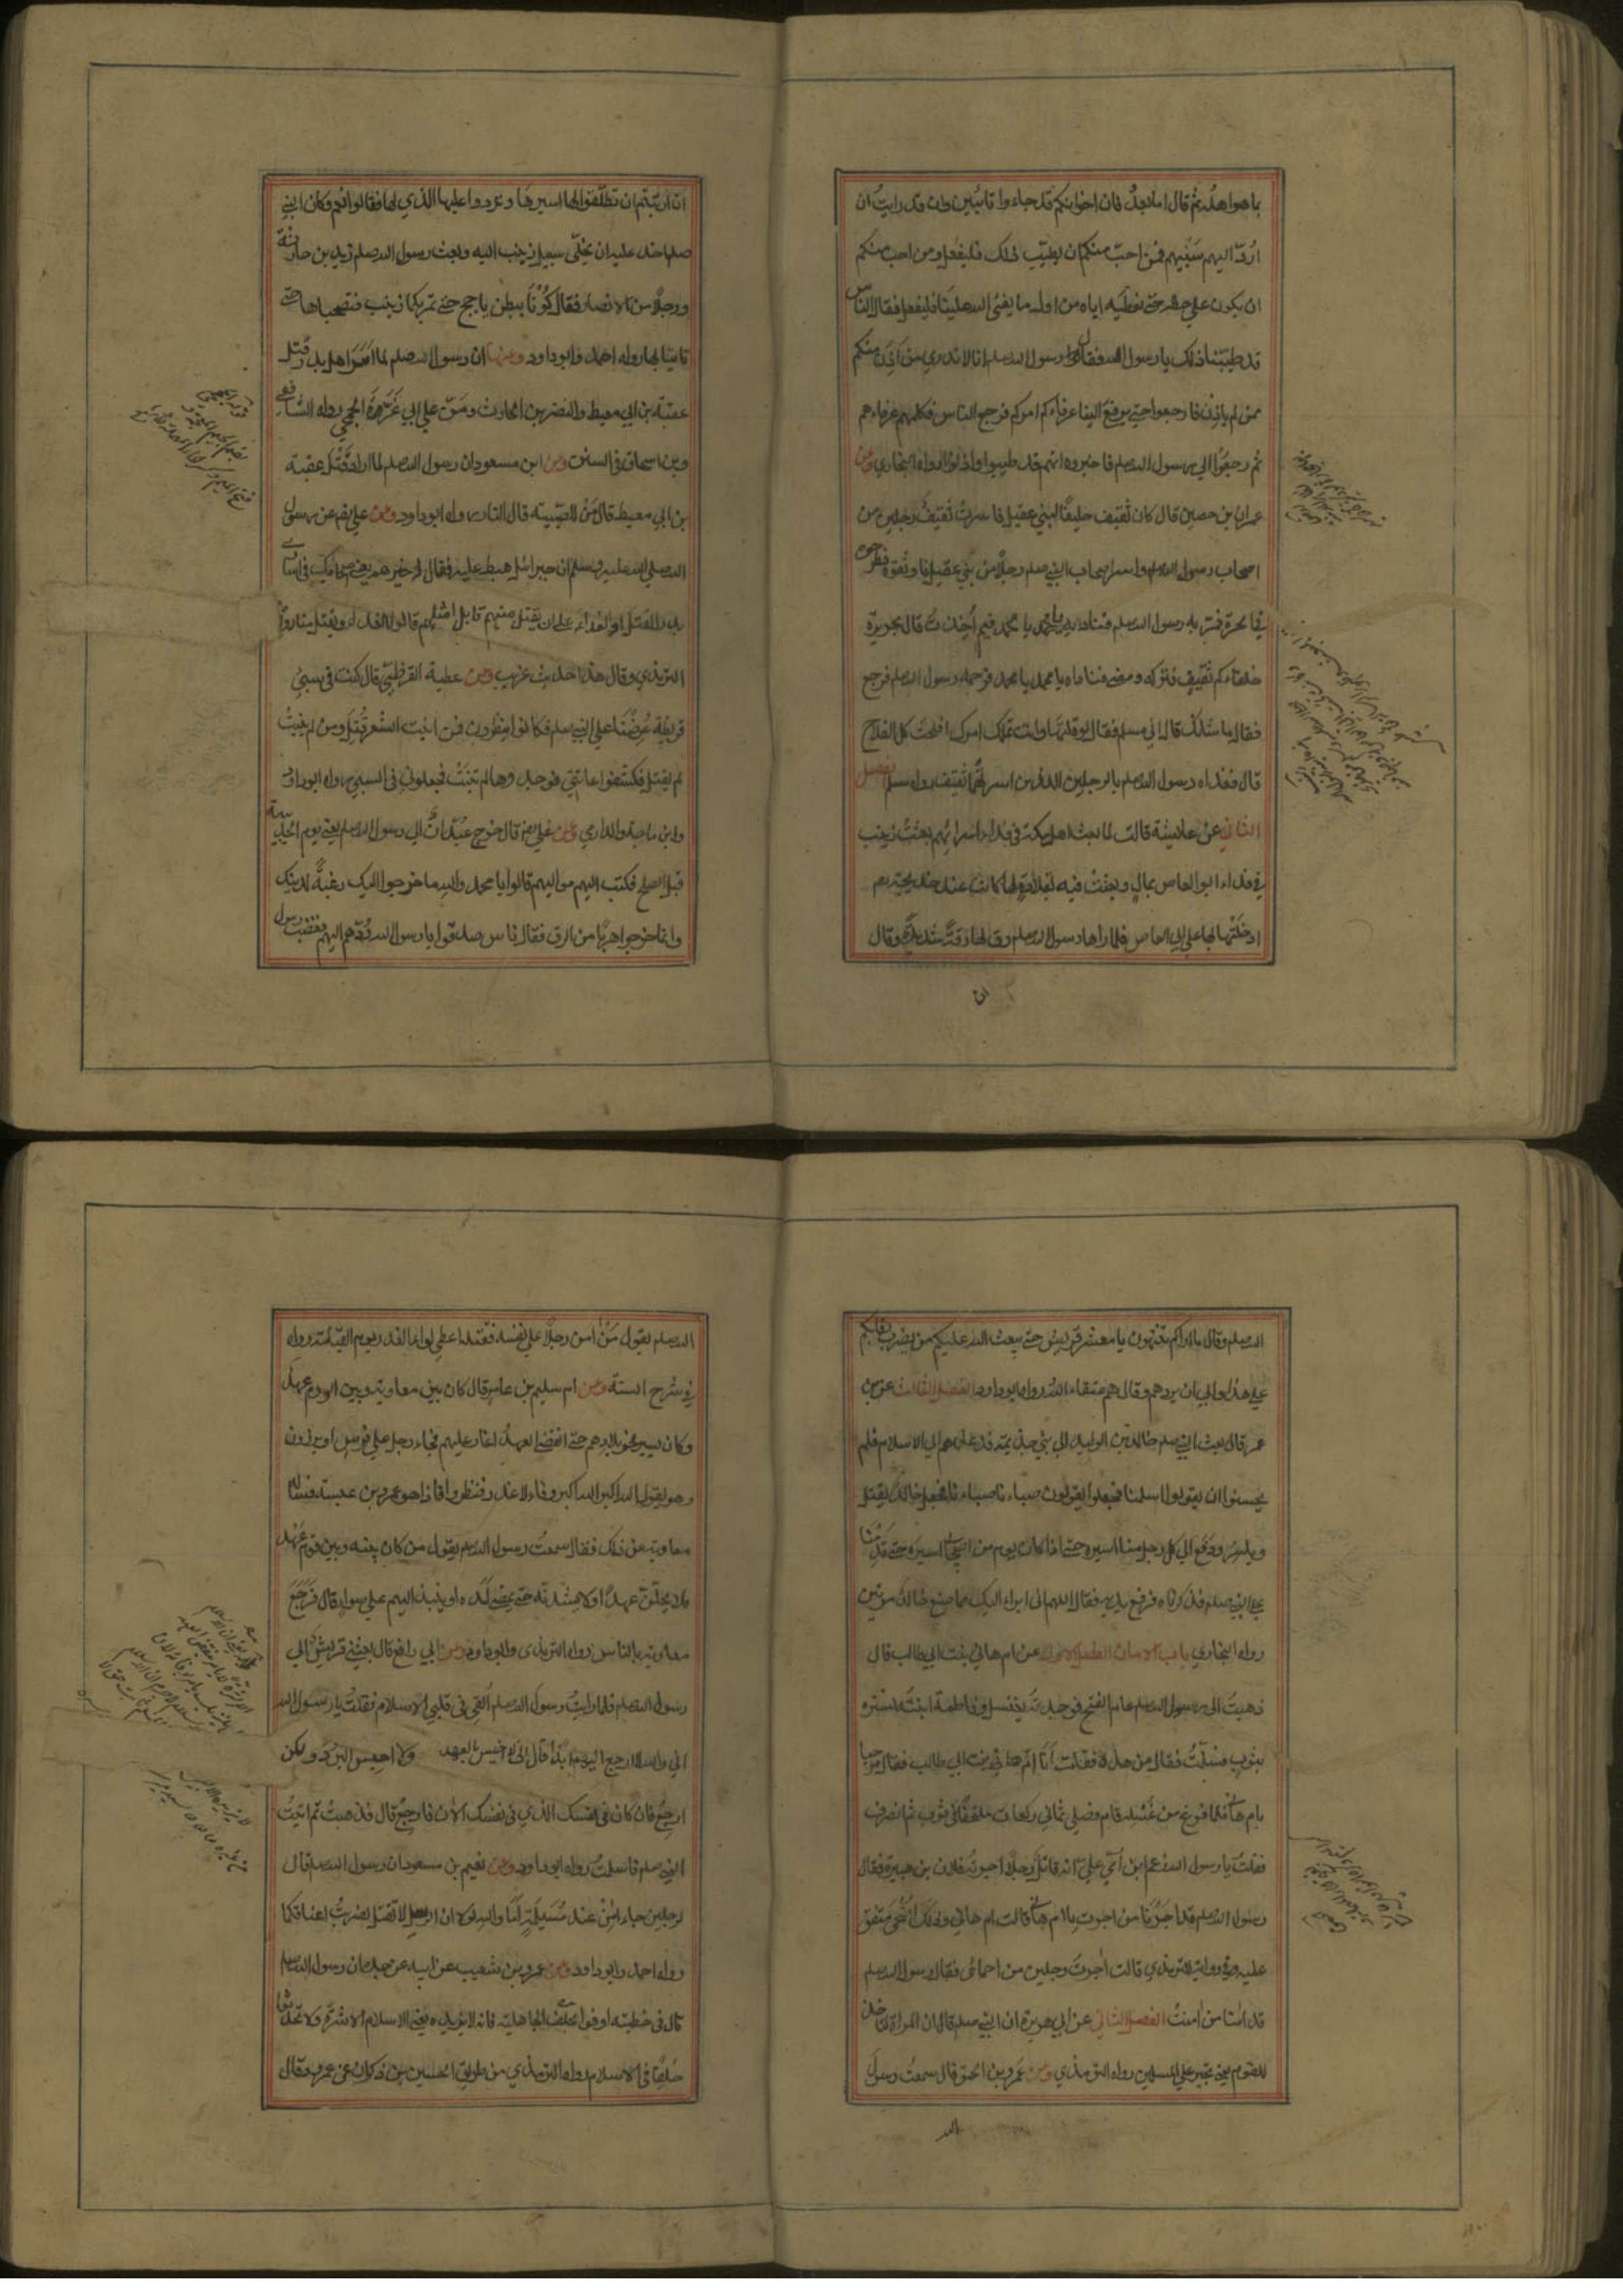 باهو اهله ثم قال اما بعد فان اخوانكم قد جاءوا تائبين وان قد رايت ان
اردّ اليهم سَبْيهم فمن احبّ منكم ان يطيّب ذلك فليفعل ومن احب منكم
ان يكون على حظه حتى نعطيه اياه من اول ما يفئ الله علينا فليفعل فقال الناس
قد طيّبنا ذلك يا رسول الله فقال رسول الله صلعم انا لا ندري من اَذِنَ منكم
ممن لم ياذن فارجعوا حتى يرفع الينا عرفاءكم امركم فرجع الناس فكلمهم عرفاءهم
ثم رجعوا الى رسول الله صلعم فاخبروه انهم قد طيبوا واذنوا رواه البخاري وعن
عمران بن حصين قال كان ثقيف حليفًا لبني عقيل فاسرت ثقيف رجلين من
اصحاب رسول الله صلعم واسر اصحاب النبي صلعم رجلًا من بني عقيل فاوثقوه فطرحوه
في الحرة فمر به رسول الله صلعم فناداه يا محمد يا محمد فيم اُخذت قال بجريرة
حلفاءكم ثقيف فتركه ومضى فناداه يا محمد يا محمد فرحمه رسول الله صلعم فرجع
فقال ما شانك قال اني مسلم فقال لو قلتها وانت تملك امرك افلحت كل الفلاح
قال ففداه رسول الله صلعم بالرجلين الذين اسرتهما ثقيف رواه مسلم الفصل
الثاني عن عايشة قالت لما بعث اهل مكة في فداء اسرائهم بعثت زينب
في فداء ابو العاص بمال وبعثت فيه بقلادة لها كانت عند خديجة
ادخلتها بها على ابي العاص فلما راها رسول الله صلعم رق لها رقة شديدة وقال
ان
ان رايتم ان تطلقوا لها اسيرها وتردوا عليها الذي لها فقالوا نعم وكان النبي
صلعم اخذ عليه ان يخلّي سبيل زينب اليه وبعث رسول الله صلعم زيد بن حارثة
ورجلًا من الانصار فقال كونا ببطن ياجج حتى تمر بكما زينب فتصحباها حتى
تاتيا بها رواه احمد وابو داود وعنها ان رسول الله صلعم لما اسر اهل بدر قتل
عقبة بن ابي معيط والنضر بن الحارث ومَنّ على ابي عَزَّة الجمحي رواه الشافعي
وبن اسحاق في السنن وعن ابن مسعود ان رسول الله صلعم لما اراد قتل عقبة
بن ابي معيط قال مَنْ للصّبية قال النار رواه ابو داود وعن علي رضي عن رسول
الله صلى الله عليه وسلم ان جبرائيل هبط عليه فقال له خيرهم يعني اصحابك في اسارى
بدر القتل او الفداء على ان يقتل منهم قابل مثلهم قالوا الفداء ويقتل منا رواه
الترمذي وقال هذا حديث غريب وعن عطية القرظيّ قال كنت في سبي
قريظة عُرِضْنا على النبي صلعم فكانوا ينظرون فمن انبت الشعر قُتِل ومن لم ينبتْ
لم يقتل فكشفوا عانتي فوجدوها لم تنبُتْ فجعلوني في السبي رواه ابو داود
وابن ماجة والدارمي وعن علي رضي قال خرج عُبْدان الى رسول الله صلعم يعني يوم الحديبية
قبل الصلح فكتب اليهم مواليهم قالوا يا محمد والله ما خرجوا اليك رغبةً لدينك
وانما خرجوا هربًا من الرق فقال ناس صدقوا يا رسول الله رُدّهم اليهم فغضب رسول
الله صلعم وقال ما اراكم تنتهون يا معشر قريش حتى يبعث الله عليكم من يضرب رقابكم
على هذا وابى ان يردهم وقال هم عتقاء الله رواه ابو داود الفصل الثالث عن بن
عمر قال بعث النبي صلعم خالد بن الوليد الى بني جذيمة فدعاهم الى الاسلام فلم
يحسنوا ان يقولوا اسلمنا فجعلوا يقولون صباءنا صباءنا فجعل خالد يقتل
وياسر ودفع الى كل رجل منا اسيره حتى اذا كان يوم من اسيره حتى قدمنا
على النبي صلعم فذكرناه فرفع يديه فقال اللهم انى ابراء اليك مما صنع خالد مرتين
رواه البخاري باب الامان الفصل الاول عن ام هاني بنت ابي طالب قال
ذهبت الى رسول الله صلعم عام الفتح فوجدته يغتسل وفاطمة ابنته تستره
بثوب فسلمتُ فقال من هذه فقلت اَنَا ام هاني بنت ابي طالب فقال مرحبا
بام هاني فلما فرغ من غُسْله قام فصلى ثماني ركعات ملتحفًا في ثوب ثم انصرف
فقلت يا رسول الله زعم ابن اُمّي علي انه قاتل رجلًا اجرته فلان بن هبيرة فقال
رسول الله صلعم قد اَجَرْنا من اجرتِ يا ام هاني قالت ام هاني وذلك ضُحًى متفق
عليه وفي رواية الترمذي قالت اجرت رجلين من احمائى فقال رسول الله صلعم
قد امنا من امنتْ الفصل الثاني عن ابي هريرة ان النبي صلعم قال ان المراة لتاخذ
للقوم يعني تجير على المسلمين رواه الترمذي وعن عَمرو بن الحمق قال سمعت رسول
الله
الله صلعم يقول مَنْ امن رجلًا على نفسه فقتله اعطي لواء الغدر يوم القيامة رواه
في شرح السنة وعن ام سليم بن عامر قال كان بين معاوية وبين الروم عهد
وكان يسير نحو بلادهم حتى اذا انقضى العهد اغار عليهم فجاء رجل على فرس او برذون
وهو يقول الله اكبر الله اكبر وفاء لا غدر فنظروا فاذا هو عمرو بن عبسة فساله
معاوية عن ذلك فقال سمعتُ رسول الله صلعم يقول من كان بينه وبين قوم عَهْد
فلا يحلّنّ عهدًا ولا يشدنّه حتى يمضى اَمَده او ينبذ اليهم على سواء قال فرَجَعَ
معاوية بالناس رواه الترمذي وابو داود وعن ابي رافع قال بعثني قريش الى
رسول الله صلعم فلما رايت رسول الله صلعم اُلقِي في قلبي الاسلام فقلتُ يا رسول الله
اني والله لا ارجع اليهم ابدًا قال انى لا اخيس بالعهد ولا احبس البُرُد ولكن
ارجع فان كان في نفسك الذي في نفسك الان فارجع قال فذهبتُ ثم اتيتُ
النبي صلعم فاسلمتُ رواه ابو داود وعن نعيم بن مسعود ان رسول الله صلعم قال
لرجلين جاءا مِنْ عند مُسَيلمة اَمَا والله لولا ان الرسل لا تقتل لضربتُ اعناقكما
رواه احمد وابو داود وعن عمرو بن شعيب عن ابيه عن جده ان رسول الله صلعم
قال في خطبته اوفوا بحلف الجاهلية فانه لا يزيده يعني الاسلام الا شدة ولا تحدثوا
حُلفًا في الاسلام رواه الترمذي من طريق الحسين بن ذكوان عن عمرو وقال